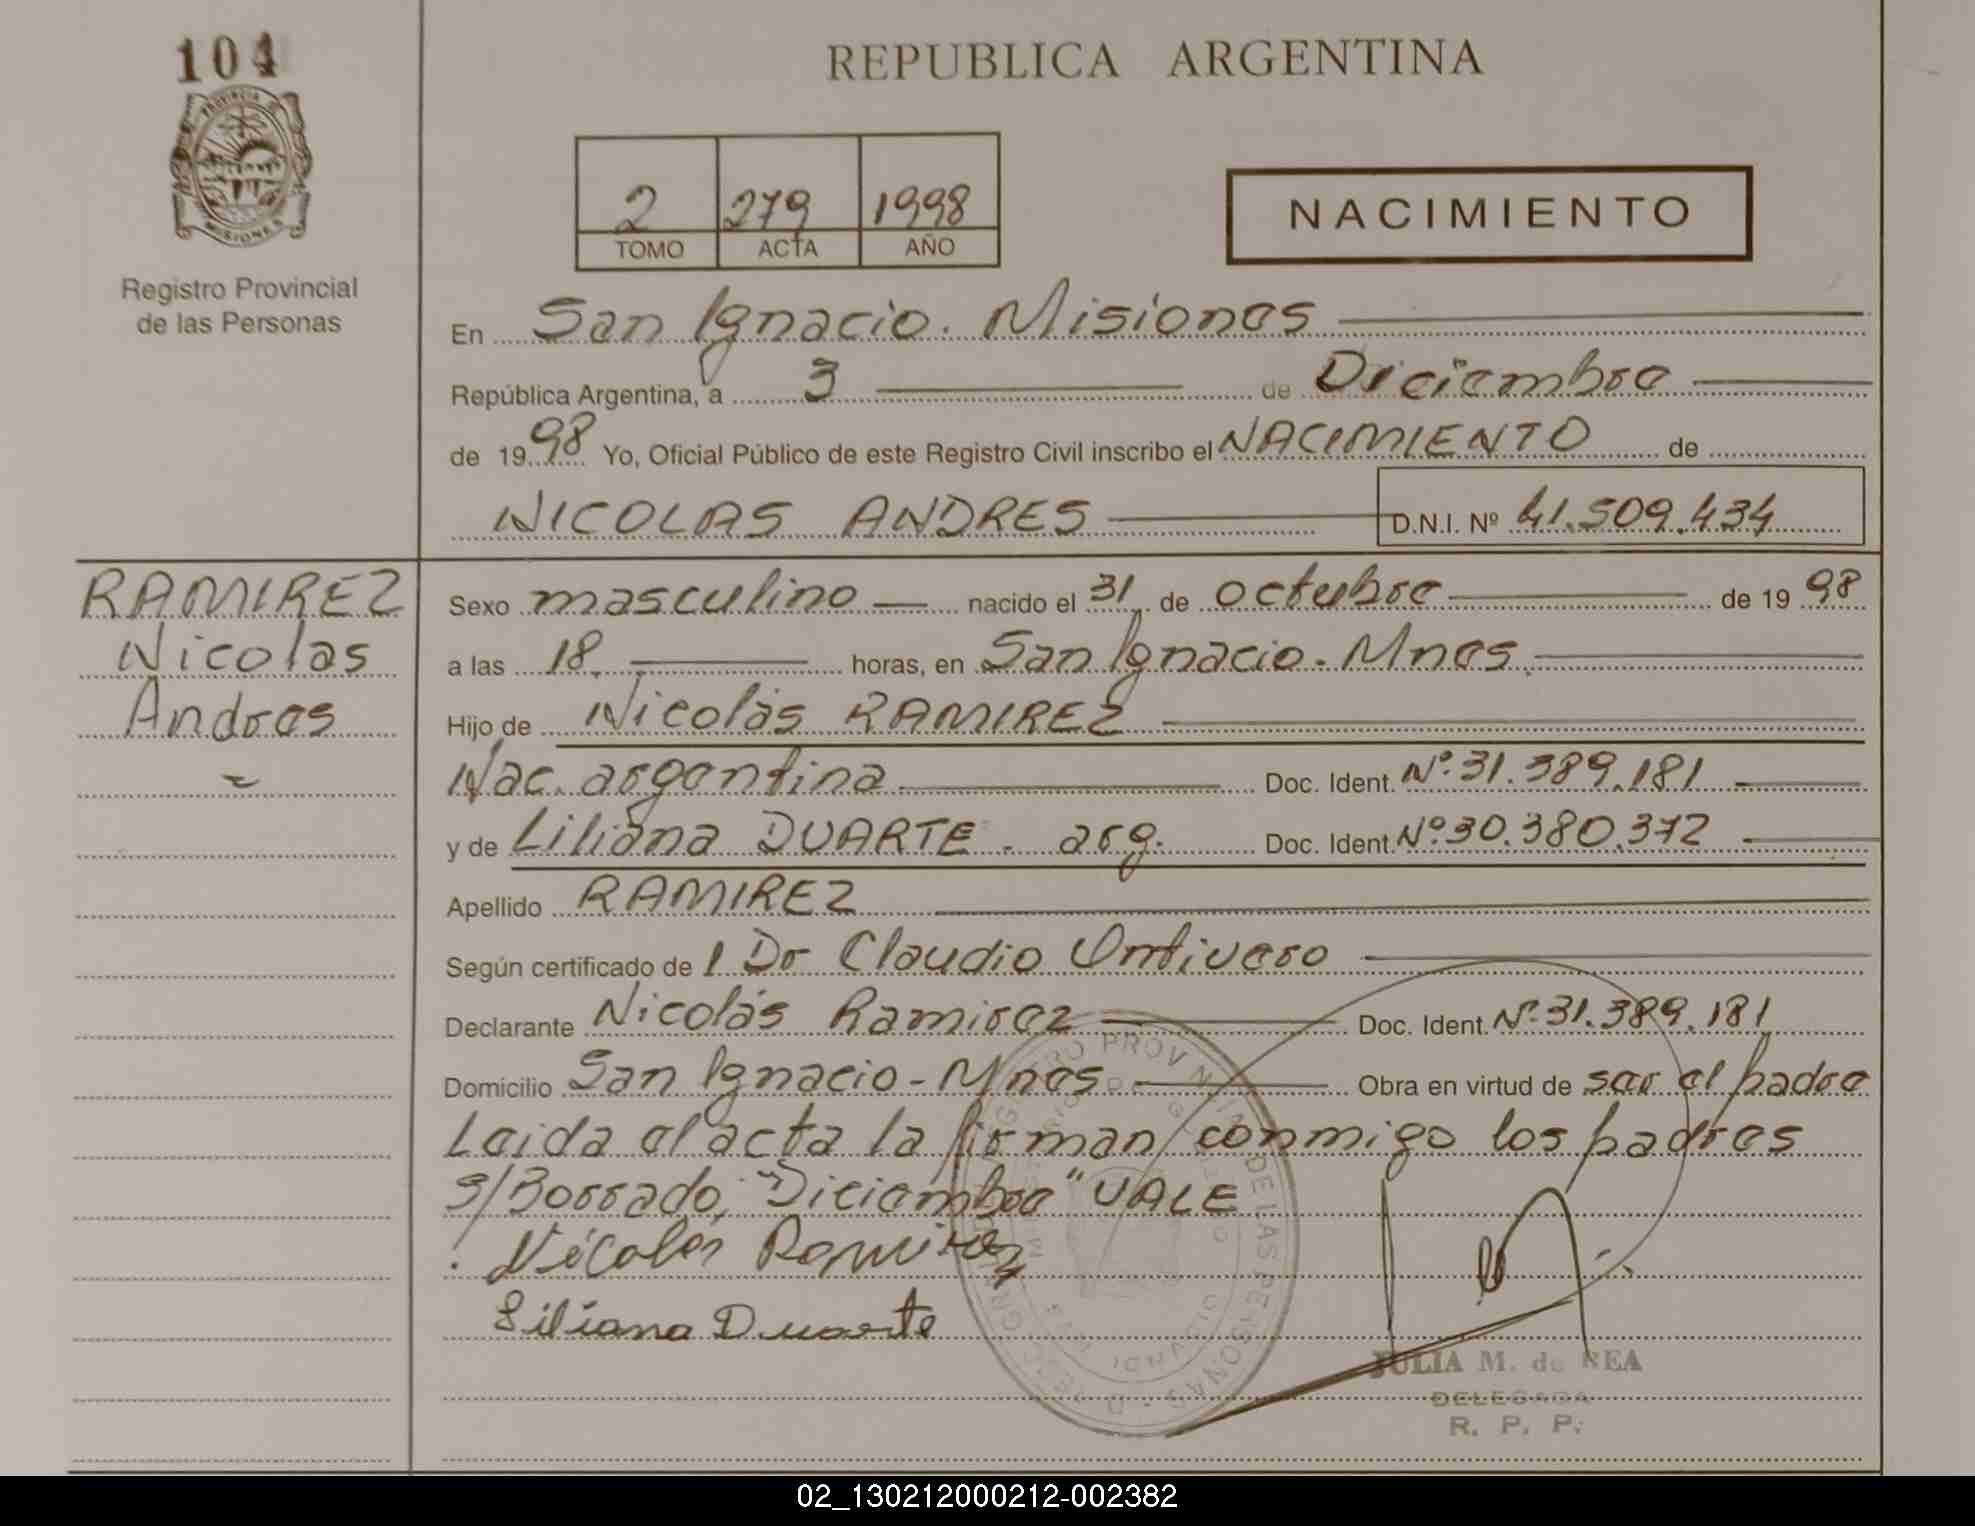 104
REPUBLICA ARGENTINA
PROVINCIA DE
MISIONES
2 279 1998
TOMO ACTA AÑO
NACIMIENTO
Registro Provincial
de las Personas
En San Ignacio. Misiones
República Argentina, a 3 de Diciembre
de 1998 Yo, Oficial Público de este Registro Civil inscribo el NACIMIENTO de
NICOLAS ANDRES D.N.I. Nº 41.509.434
RAMIREZ
Nicolas
Andres
Sexo masculino nacido el 31 de octubre de 1998
a las 18 horas, en San Ignacio. Mnes.
Hijo de Nicolás RAMIREZ
Nac. argentina Doc. Ident. Nº 31.389.181
y de Liliana DUARTE. arg. Doc. Ident. Nº 30.380.372
Apellido RAMIREZ
Según certificado de l Dr Claudio Ontivero
Declarante Nicolás Ramirez Doc. Ident. Nº 31.389.181
Domicilio San Ignacio - Mnes Obra en virtud de ser el padre
Leida el acta la firman conmigo los padres
S/Borrado: "Diciembre" VALE
Nicolás Ramirez
Liliana Duarte
JULIA M. de REA
DELEGADA
R. P. P.
02_130212000212-002382